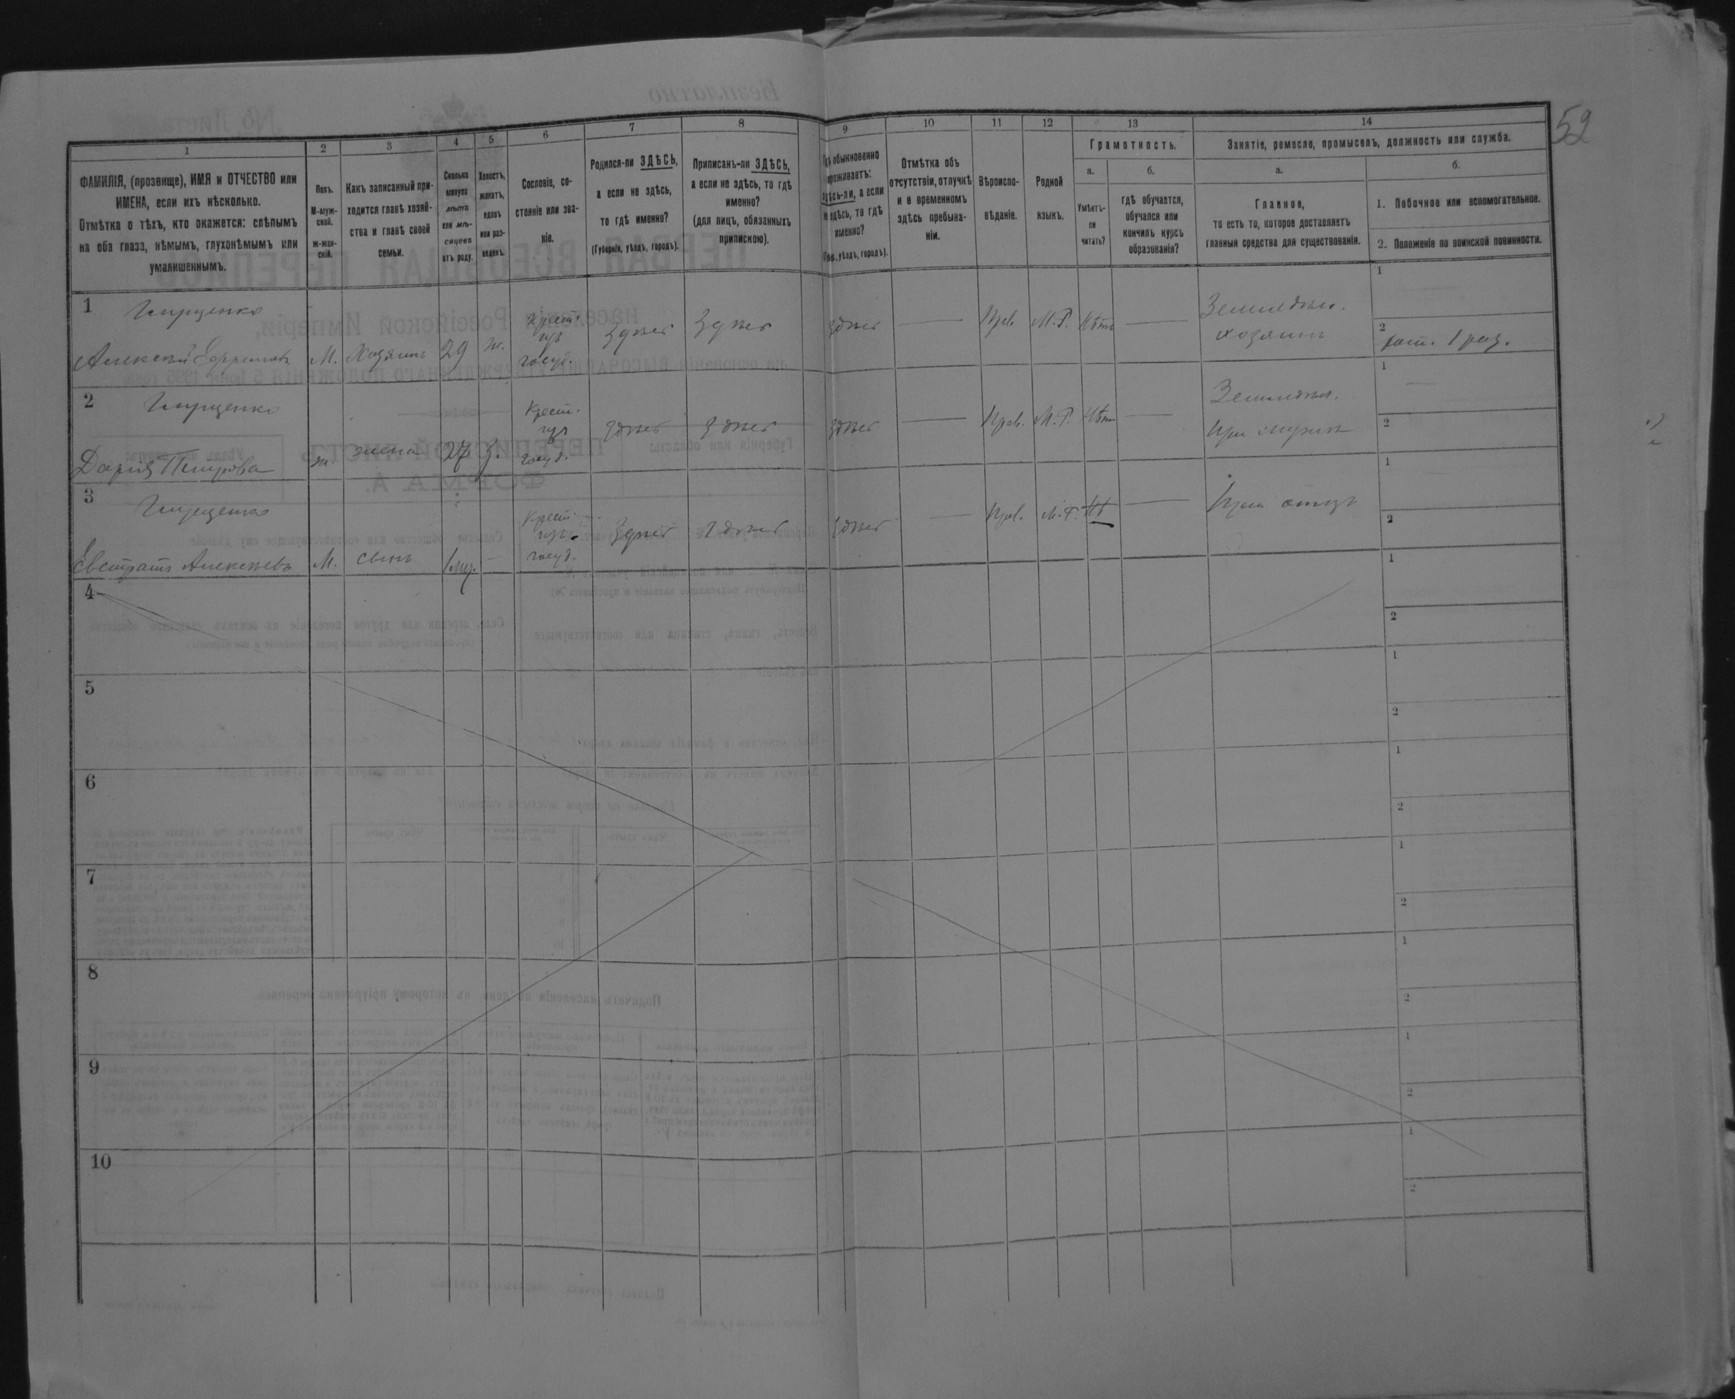 52
1
ФАМИЛІЯ, (прозвище), ИМЯ и ОТЧЕСТВО или
ИМЕНА, если ихъ нѣсколько.
Отмѣтка о тѣхъ, кто окажется: слѣпымъ
на оба глаза, нѣмымъ, глухонѣмымъ или
умалишеннымъ.
2
Полъ.
М-муж-
ской.
Ж-жен-
скій.
3
Какъ записанный при-
ходится главѣ хозяй-
ства и главѣ своей
семьи.
4
Сколько
минуло
лѣтъ
или мѣ-
сяцевъ
отъ роду.
5
Холостъ,
женатъ,
вдовъ
или раз-
веденъ.
6
Сословіе, со-
стояніе или зва-
ніе.
7
Родился-ли ЗДѢСЬ,
а если не здѣсь,
то гдѣ именно?
(Губернія, уѣздъ, городъ).
8
Приписанъ-ли ЗДѢСЬ,
а если не здѣсь, то гдѣ
именно?
(для лицъ, обязанныхъ
припискою).
9
обыкновенно
проживаетъ:
здѣсь-ли, а если
не здѣсь, то гдѣ
именно?
уѣздъ, городъ).
10
Отмѣтка объ
отсутствіи, отлучкѣ
и о временномъ
здѣсь пребыва-
ніи.
11
Вѣроиспо-
вѣданіе.
12
Родной
языкъ.
13
Грамотность.
а.
Умѣетъ-
ли
читать?
б.
гдѣ обучается,
обучался или
кончилъ курсъ
образованія?
14
Занятіе, ремесло, промыселъ, должность или служба.
а.
Главное,
то есть то, которое доставляетъ
главныя средства для существованія.
б.
1. Побочное или вспомогательное.
2. Положеніе по воинской повинности.
1
Алексѣй
М. Хозяинъ 29 ж.
Крест.
изъ
госуд.
Здѣсь Здѣсь здѣсь — Прав. М.Р. Нѣтъ —
Земледѣл.
хозяинъ
1
2
1 раз.
2
Дарія Петрова
ж. жена 27 з.
Крест.
изъ
госуд.
Здѣсь Здѣсь здѣсь — Прав. М.Р. Нѣтъ —
Земледѣл.
при мужѣ
1
2
3
Евстратъ Алексѣевъ
М. сынъ —
Крест.
изъ
госуд.
Здѣсь Здѣсь здѣсь — Прав. М.Р. —
При отцѣ
1
2
4
1
2
5
1
2
6
1
2
7
1
2
8
1
2
9
1
2
10
1
2